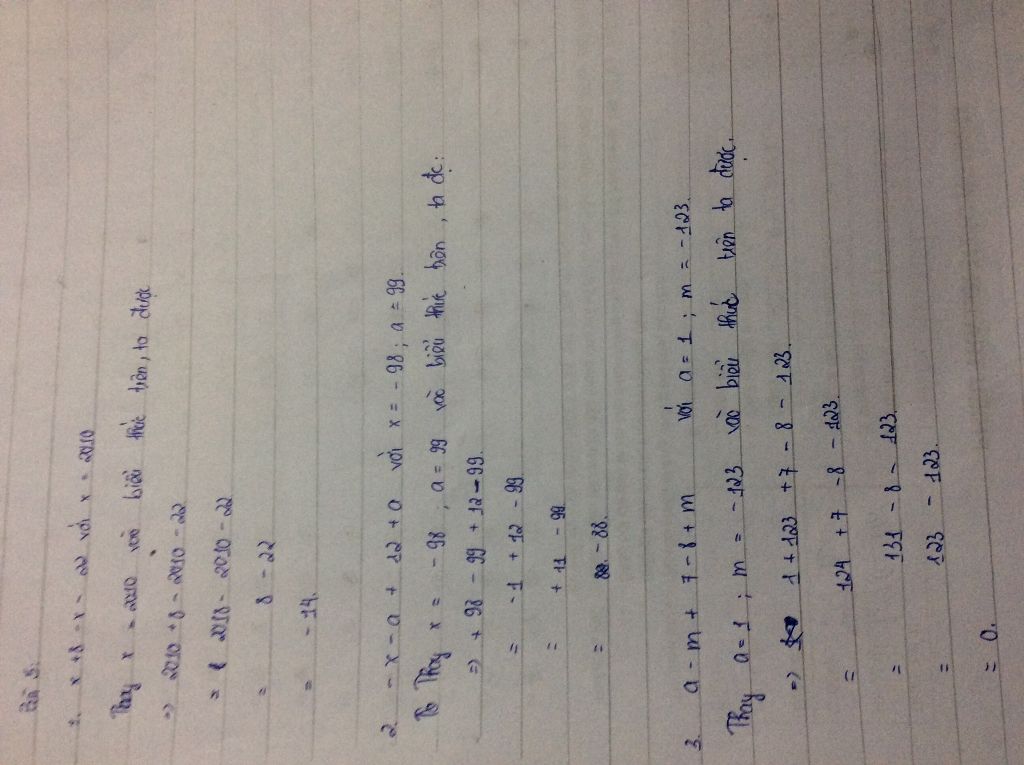 Bài 3:
1. x + 8 - x - 22 với x = 2010
Thay x = 2010 vào biểu thức trên, ta được
=> 2010 + 8 - 2010 - 22
= 2018 - 2010 - 22
= 8 - 22
= - 14.
2. - x - a + 12 + a với x = - 98 ; a = 99.
Thay x = - 98 ; a = 99 vào biểu thức trên, ta đc:
=> + 98 - 99 + 12 - 99.
= - 1 + 12 - 99
= + 11 - 99
= - 88.
3. a - m + 7 - 8 + m với a = 1 ; m = - 123.
Thay a = 1 ; m = - 123 vào biểu thức trên ta được.
=> 1 + 123 + 7 - 8 - 123.
= 124 + 7 - 8 - 123.
= 131 - 8 - 123.
= 123 - 123.
= 0.